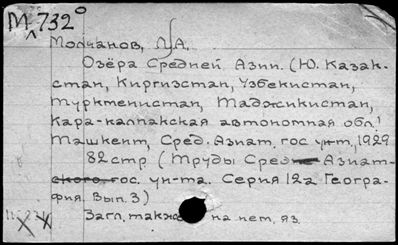 М732°
Молчанов, Л.А.
Озёра Средней Азии. (Ю. Казак-
стан, Киргизстан, Узбекистан,
Туркменистан, Таджикистан,
Кара-калпакская автономная обл.
Ташкент, Сред. Азиат. гос ун-т, 1929
82 стр (Труды Сред Азиат-
ского гос. ун-та. Серия 12а Геогра-
фия. Вып. 3)
Загл. также на нем. яз.